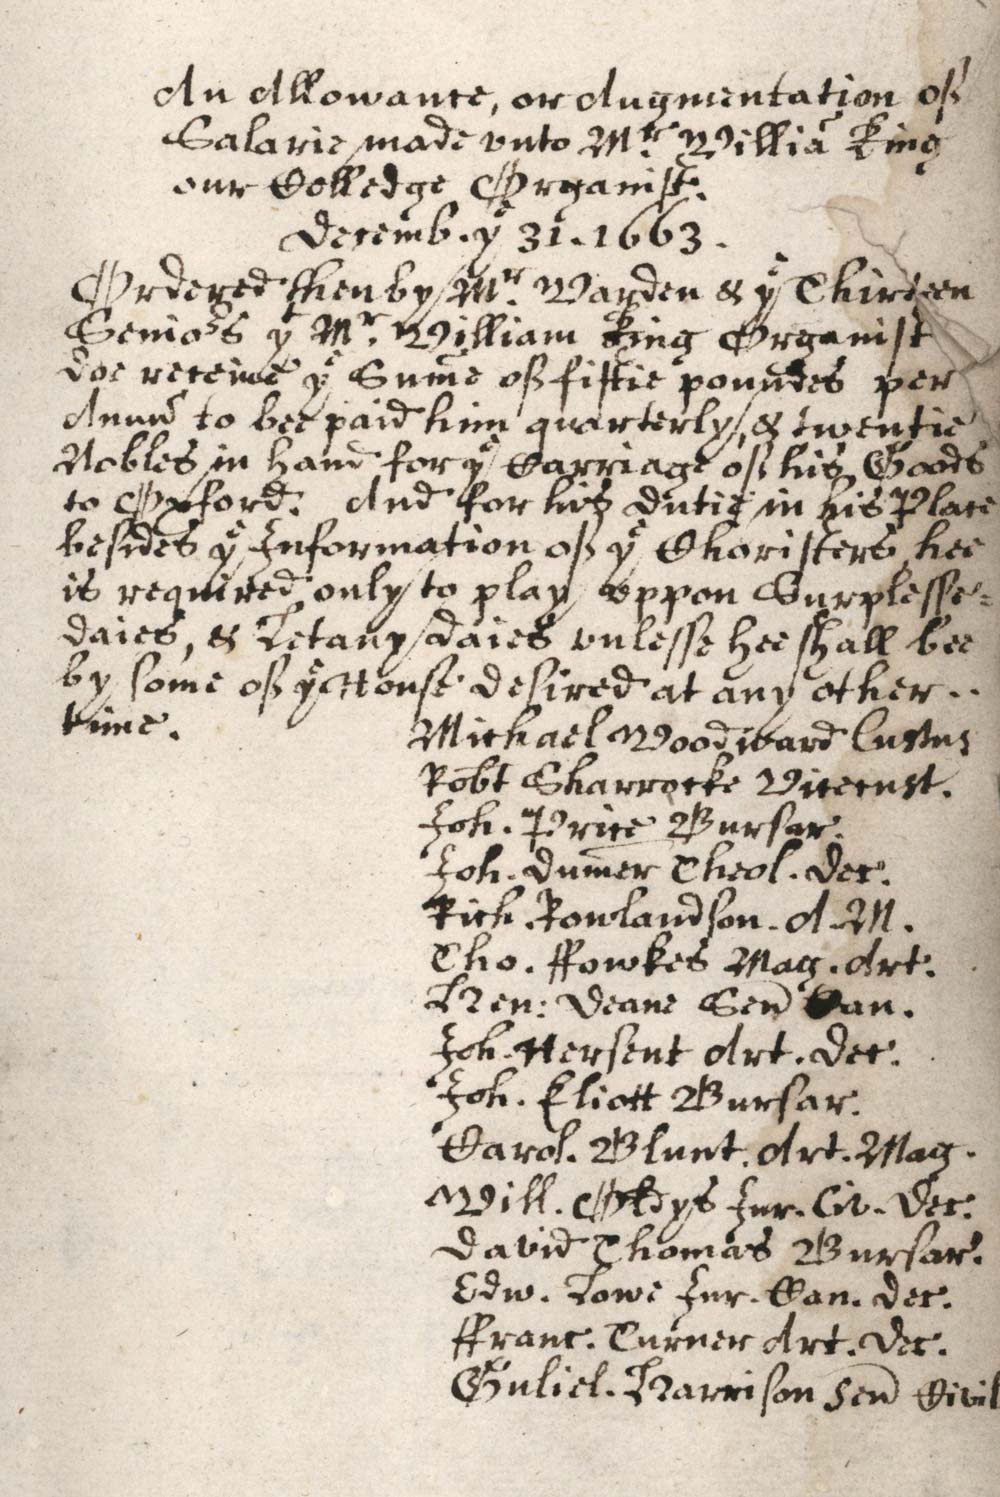 An Allowance, or Augmentation of
Salarie made vnto Mr. Willia King
our Colledge Organist.
Decemb. ye 31. 1663.
Ordered then by Mr. Warden & ye Thirteen
Seniors yt Mr. William King Organist
doe receive ye Sume of fiftie poundes per
Annu to bee paid him quarterly, & twentie
Nobles in hand for ye Carriage of his Goods
to Oxford. And for his dutie in his Place
besides ye Information of ye Choristers, hee
is required only to play vppon Surplesse=
daies, & Letany daies vnlesse hee shall bee
by some of ye House desired at any other..
time.
Michael Woodward Custus
Robt Sharrocke Vicecust.
Joh. Price Bursar.
Joh. Dumer Theol. Dec.
Rich. Rowlandson. A. M.
Tho. ffowkes Mag. Art.
Hen: Deane Sen Can.
Joh. Hersent Art. Dec.
Joh. Eliott Bursar.
Carol. Blunt. Art. Mag.
Will. Oldys Jur. Civ. Dec.
David Thomas Bursar.
Edw. Lowe Jur. Can. Dec.
ffranc. Turner Art. Dec.
Guliel. Harrison Sen Civil